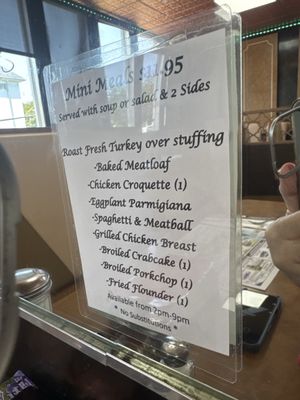 Mini Meals $11.95
Served with soup or salad & 2 Sides
Roast Fresh Turkey over stuffing
·Baked Meatloaf
·Chicken Croquette (1)
·Eggplant Parmigiana
·Spaghetti & Meatball
·Grilled Chicken Breast
·Broiled Crabcake (1)
·Broiled Porkchop (1)
·Fried Flounder (1)
Available from 2pm-9pm
* No Substitutions *